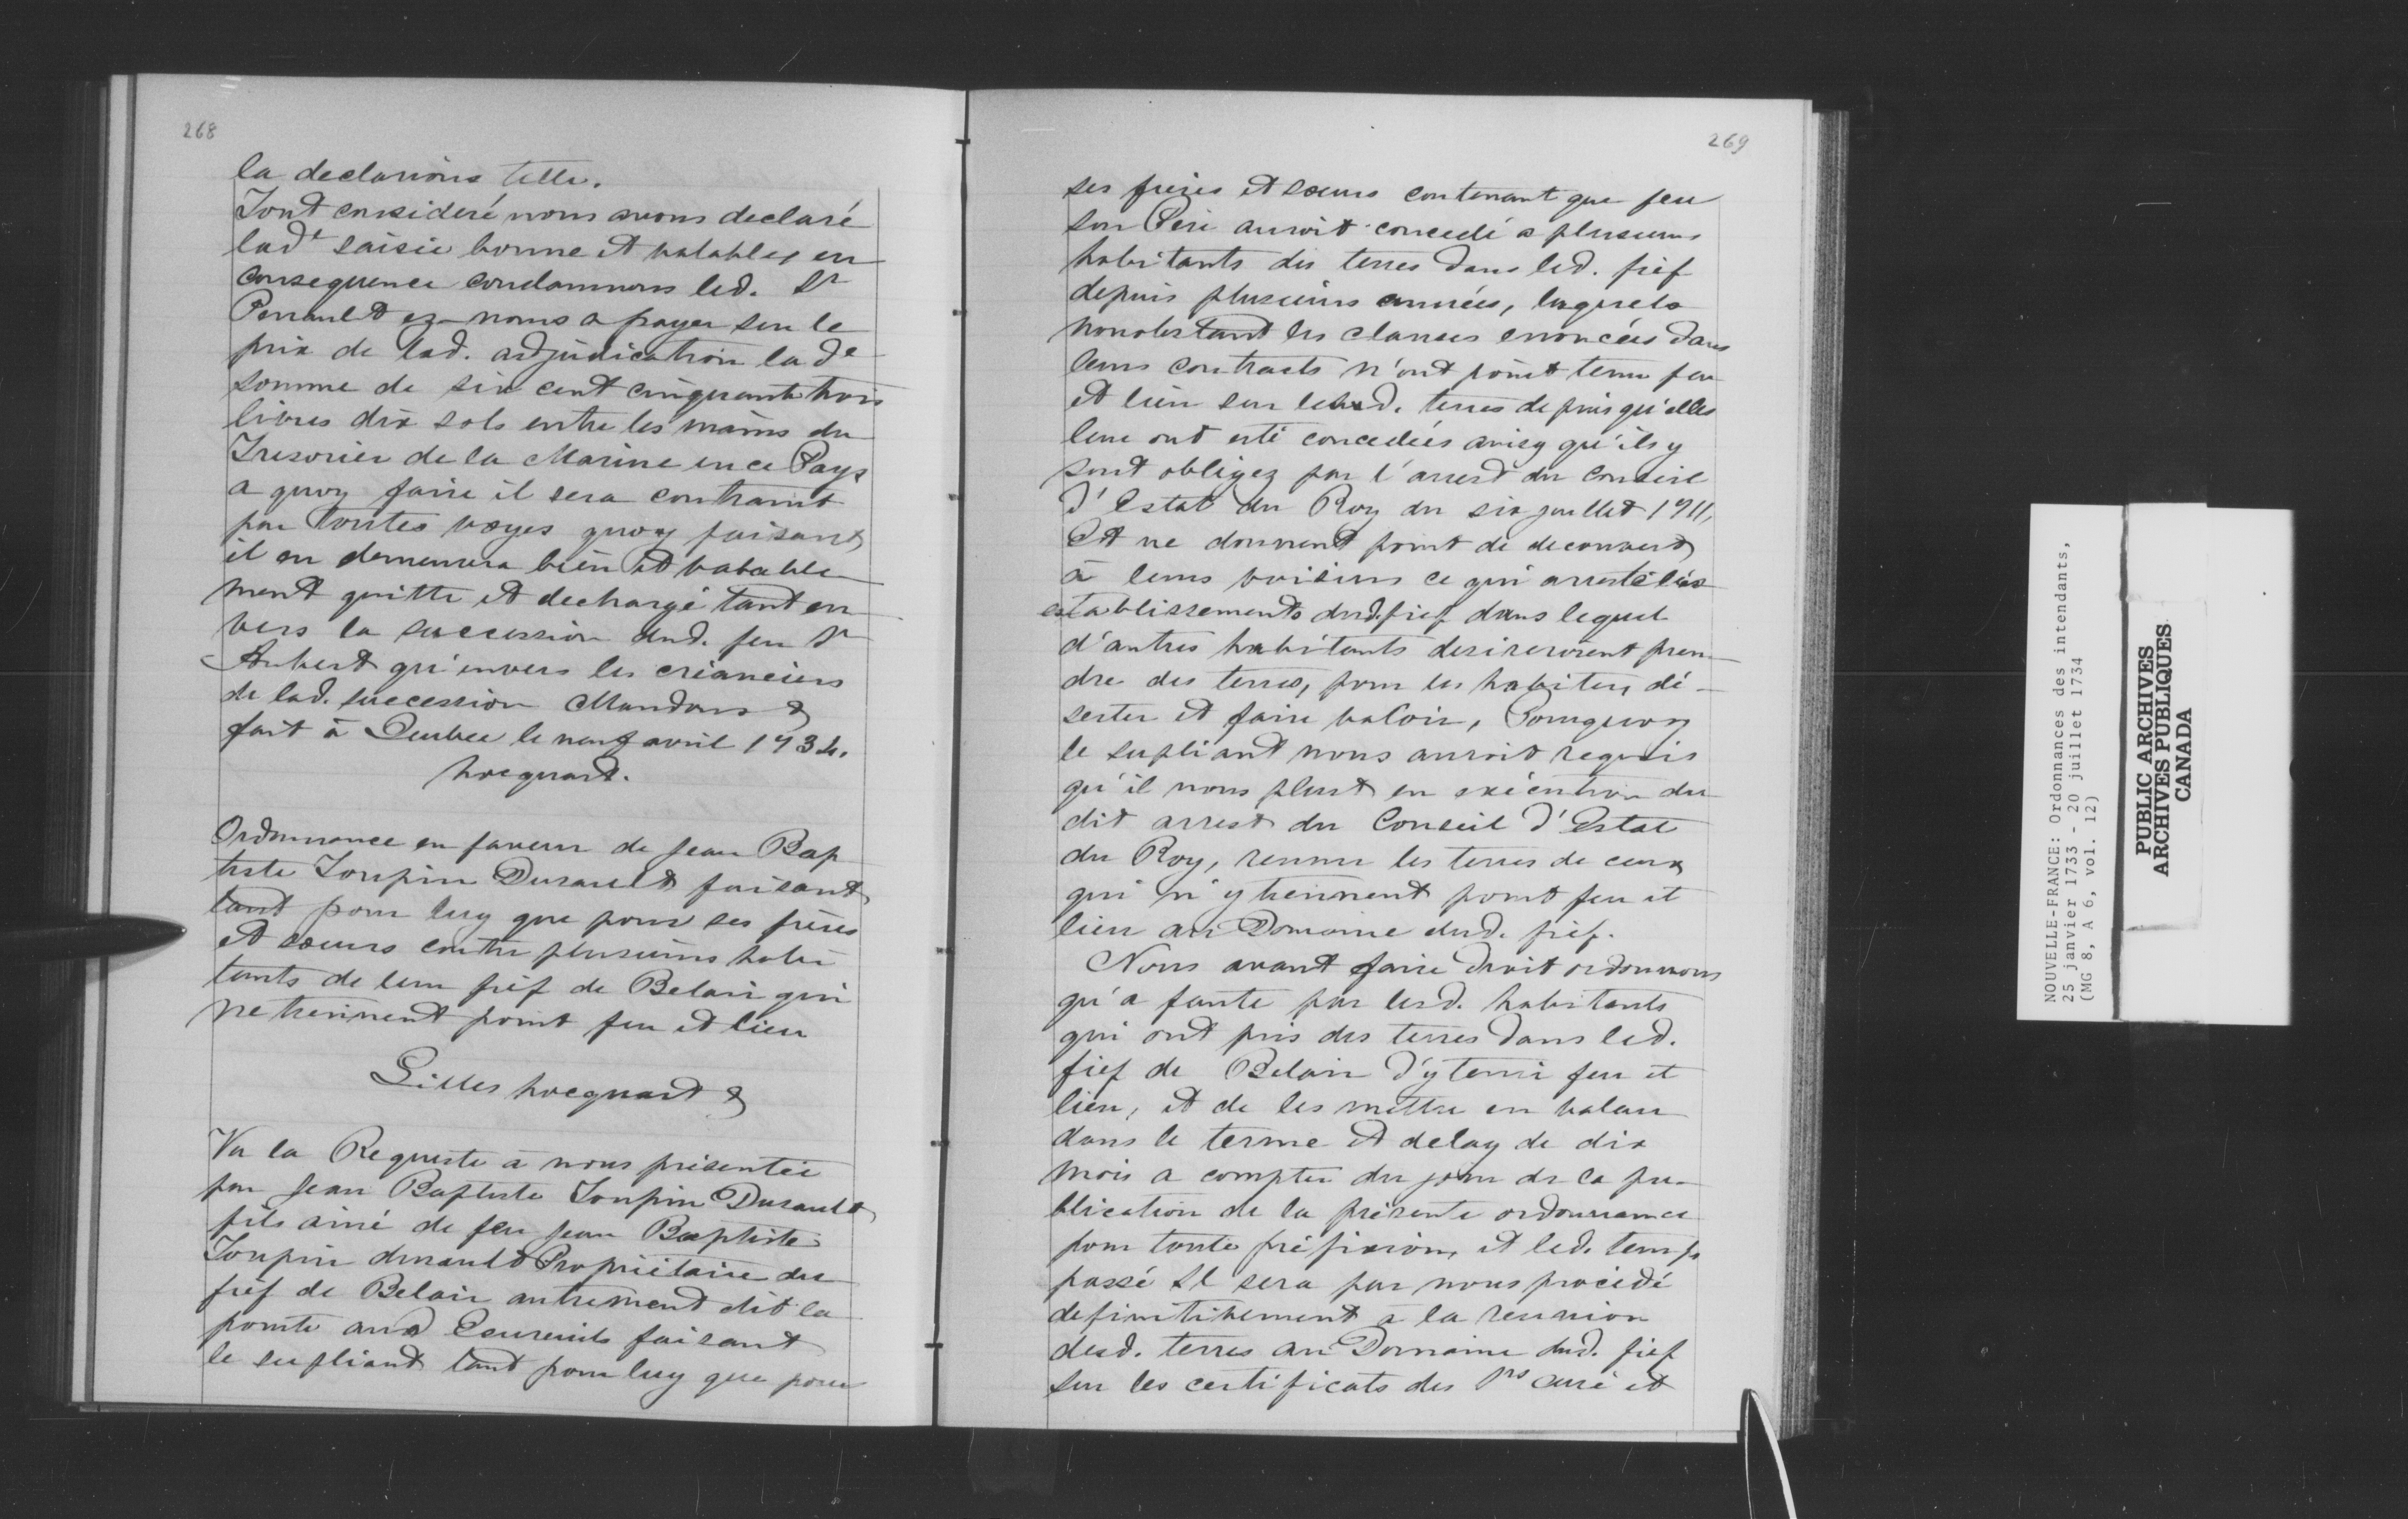 268
la declarions telle.
Tout consideré nous avons declaré
lad.t saisie bonne et valable, en
consequence condamnons led. Sr
Perrault ez-noms a payer sur le
prix de lad. adjudication lade
somme de six cent cinquante trois
livres dix sols entre les mains du
Tresorier de la Marine en ce Pays
a quoy faire il sera contraint
par toutes voyes quoy faisant
il en demeurera bien et valable
ment quitte et dechargé tant en
vers la succession dud. feu Sr
Aubert qu'envers les créanciers
de lad. succession Mandons &
fait à Quebec le neuf avril 1734.
hocquart.
Ordonnance en faveur de Jean Bap
tiste Toupin Dusault faisant
tant pour luy que pour ses frères
et sœurs contre plusieurs habi
tants de leur fief de Belair qui
ne tiennent point feu et lieu
Gilles hocquart &
Vu la Requeste à nous présentée
par Jean Baptiste Toupin Dusault
fils ainé de feu Jean Baptiste
Toupin dusault Propriétaire du
fief de Belair autrement dit la
pointe aux Ecureuils faisant
le supliant tant pour luy que pour
269
ses frères et sœurs contenant que feu
son Père auroit concedé a plusieurs
habitants des terres dans led. fief
depuis plusieurs années, lesquels
nonobstant les clauses enoncées dans
leurs contracts n'ont point tenu feu
et lieu sur lesd. terres depuis qu'elles
leur ont esté concedées ainsy qu'ils y
sont obligez par l'arrest du Conseil
d'Estat du Roy du six juillet 1711,
Et ne donnent point de decouvert
à leurs voisins ce qui arreste les
establissements dud. fief dans lequel
d'autres habitants desireroient pren-
dre des terres, pour les habiter, dé-
serter et faire valoir, Pourquoy
le supliant nous auroit requis
qu'il nous plust en exécution du
dit arrest du Conseil d'Estat
du Roy, reunir les terres de ceux
qui n'y tiennent point feu et
lieu au Domaine dud. fief.
Nous avant faire droit ordonnons
qu'a faute par lesd. habitants
qui ont pris des terres dans led.
fief de Belair d'y tenir feu et
lieu, et de les mettre en valeur
dans le terme et delay de dix
mois a compter du jour de la pu-
blication de la présente ordonnance
pour toute préfixion, et led. temps
passé Il sera par nous procédé
definitivement à la reunion
desd. terres au Domaine dud. fief
sur les certificats des Srs Curé et
NOUVELLE-FRANCE: Ordonnances des intendants,
25 janvier 1733 - 20 juillet 1734
(MG 8, A 6, vol. 12)
PUBLIC ARCHIVES
ARCHIVES PUBLIQUES
CANADA